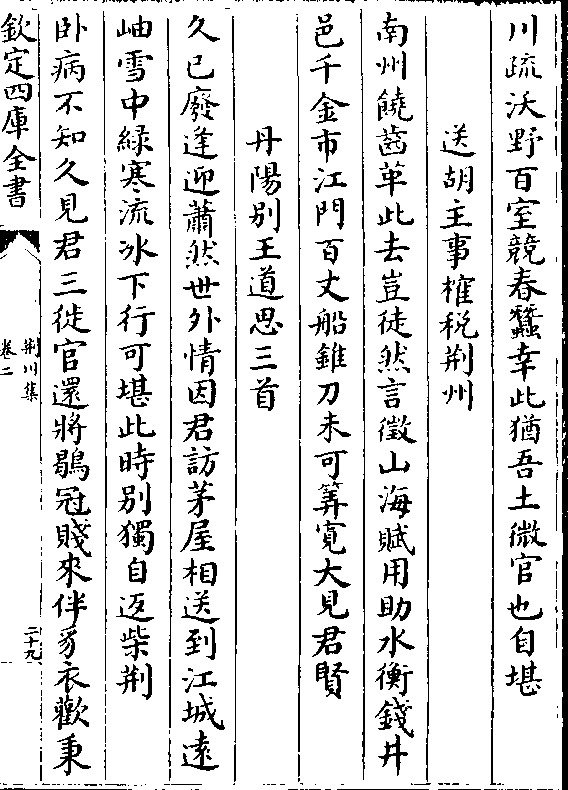 川疏沃野百室競春蠶幸此猶吾土微官也自堪
送胡主事榷税荆州
南州饒齒革此去豈徒然言徵山海賦用助水衡錢井
邑千金市江門百丈船錐刀未可筭寛大見君賢
丹陽别王道思三首
久已廢逢迎蕭然世外情因君訪茅屋相送到江城遠
岫雪中緑寒流冰下行可堪此時别獨自返柴荆
卧病不知久見君三徙官還將鶡冠賤來伴豸衣歡秉
欽定四庫全書
荆川集
卷二
二十九